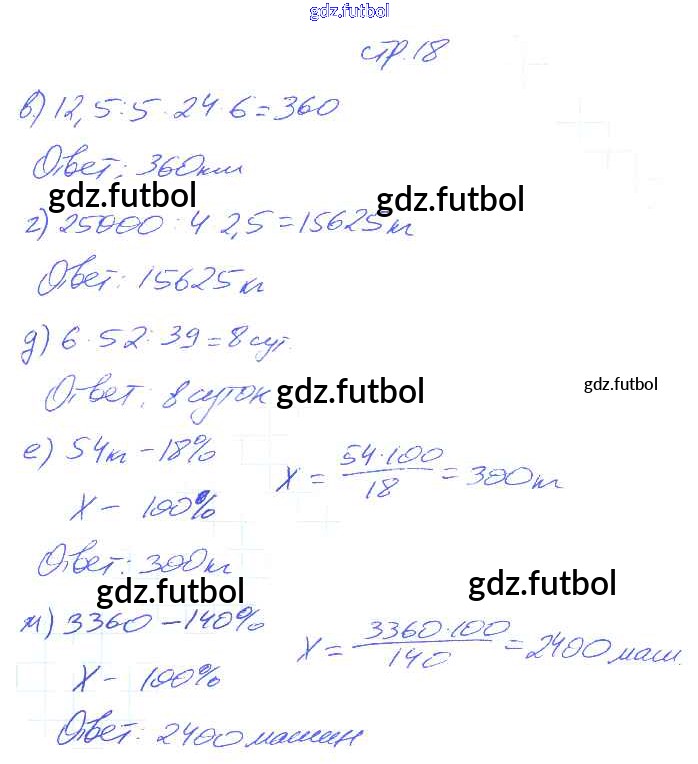 gdz.futbol
стр. 18
в) 12,5 : 5 · 24 · 6 = 360
Ответ: 360км
gdz.futbol gdz.futbol
г) 25000 : 4 2,5 = 15625 кг
Ответ: 15625 кг
д) 6 · 52 : 39 = 8 сут.
Ответ: 8 суток gdz.futbol gdz.futbol
е) 54кг – 18%
X – 100%
X = 54·100 / 18 = 300кг
Ответ: 300кг
gdz.futbol gdz.futbol
м) 3360 – 140%
X – 100%
X = 3360·100 / 140 = 2400 маш.
Ответ: 2400 машин